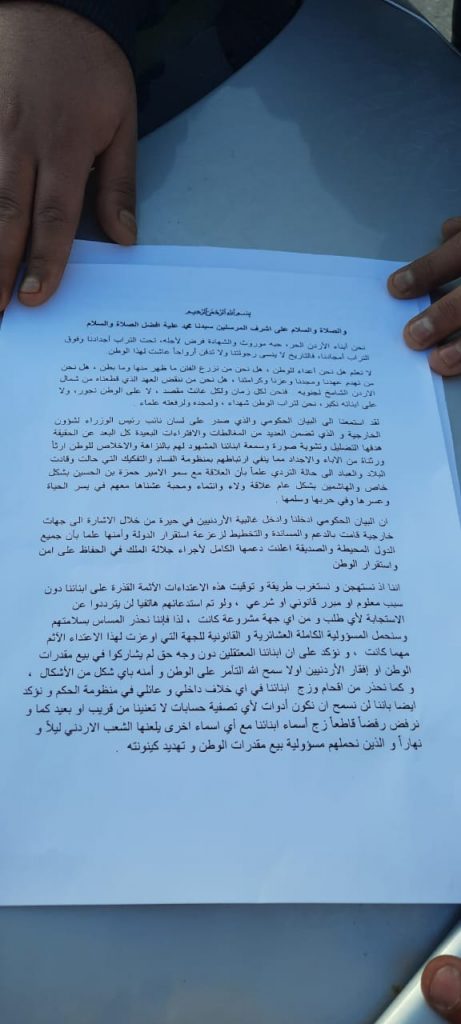 بسم الله الرحمن الرحيم
والصلاة والسلام على اشرف المرسلين سيدنا محمد علية افضل الصلاة والسلام
نحن أبناء الأردن الحر، حبه موروث والشهادة فرض لأجله، تحت التراب أجدادنا وفوق
التراب أمجادنا، فالتاريخ لا ينسى رجولتنا ولا تدفن أرواحاً عاشت لهذا الوطن.
لا نعلم هل نحن أعداء للوطن ، هل نحن من نزرع الفتن ما ظهر منها وما بطن ، هل نحن
من نهدم عهدنا ومجدنا وعزنا وكرامتنا ، هل نحن من ننقض العهد الذي قطعناه من شمال
الاردن الشامخ لجنوبه فنحن لكل زمان ولكل غائث مقصد ، لا على الوطن نجور، ولا
على ابنائه نكبر، نحن لتراب الوطن شهداء ، ولمجده ولرفعته علماء
لقد استمعنا الى البيان الحكومي والذي صدر على لسان نائب رئيس الوزراء لشؤون
الخارجية و الذي تضمن العديد من المغالطات والافتراءات البعيدة كل البعد عن الحقيقة
هدفها التضليل وتشوية صورة وسمعة ابنائنا المشهود لهم بالنزاهة والإخلاص للوطن ارثاً
ورثناة من الاباء والاجداد مما ينفي ارتباطهم بمنظومة الفساد والتفكيك التي حالت وقادت
البلاد والعباد الى حالة التردي علماً بأن العلاقة مع سمو الامير حمزة بن الحسين بشكل
خاص والهاشميين بشكل عام علاقة ولاء وانتماء ومحبة عشناها معهم في يسر الحياة
وعسرها وفي حربها وسلمها .
ان البيان الحكومي ادخلنا وادخل غالبية الأردنيين في حيرة من خلال الاشارة الى جهات
خارجية قامت بالدعم والمساندة والتخطيط لزعزعة استقرار الدولة وأمنها علما بأن جميع
الدول المحيطة والصديقة اعلنت دعمها الكامل لأجراء جلالة الملك في الحفاظ على امن
واستقرار الوطن
اننا اذ نستهجن و نستغرب طريقة و توقيت هذه الاعتداءات الأثمة القذرة على ابنائنا دون
سبب معلوم او مبرر قانوني او شرعي ، ولو تم استدعائهم هاتفيا لن يترددوا عن
الاستجابة لأي طلب و من اي جهة مشروعة كانت ، لذا فإننا نحذر المساس بسلامتهم
وسنحمل المسؤولية الكاملة العشائرية و القانونية للجهة التي اوعزت لهذا الاعتداء الأثم
مهما كانت ، و نؤكد على ان ابنائنا المعتقلين دون وجه حق لم يشاركوا في بيع مقدرات
الوطن او إفقار الأردنيين اولا سمح الله التأمر على الوطن و أمنه باي شكل من الأشكال ،
و كما نحذر من اقحام وزج ابنائنا في اي خلاف داخلي و عائلي في منظومة الحكم و نؤكد
ايضا باننا لن نسمح ان نكون أدوات لأي تصفية حسابات لا تعنينا من قريب او بعيد كما و
نرفض رفضاً قاطعاً زج أسماء ابنائنا مع أي اسماء اخرى يلعنها الشعب الاردني ليلاً و
نهاراً و الذين نحملهم مسؤولية بيع مقدرات الوطن و تهديد كينونته .